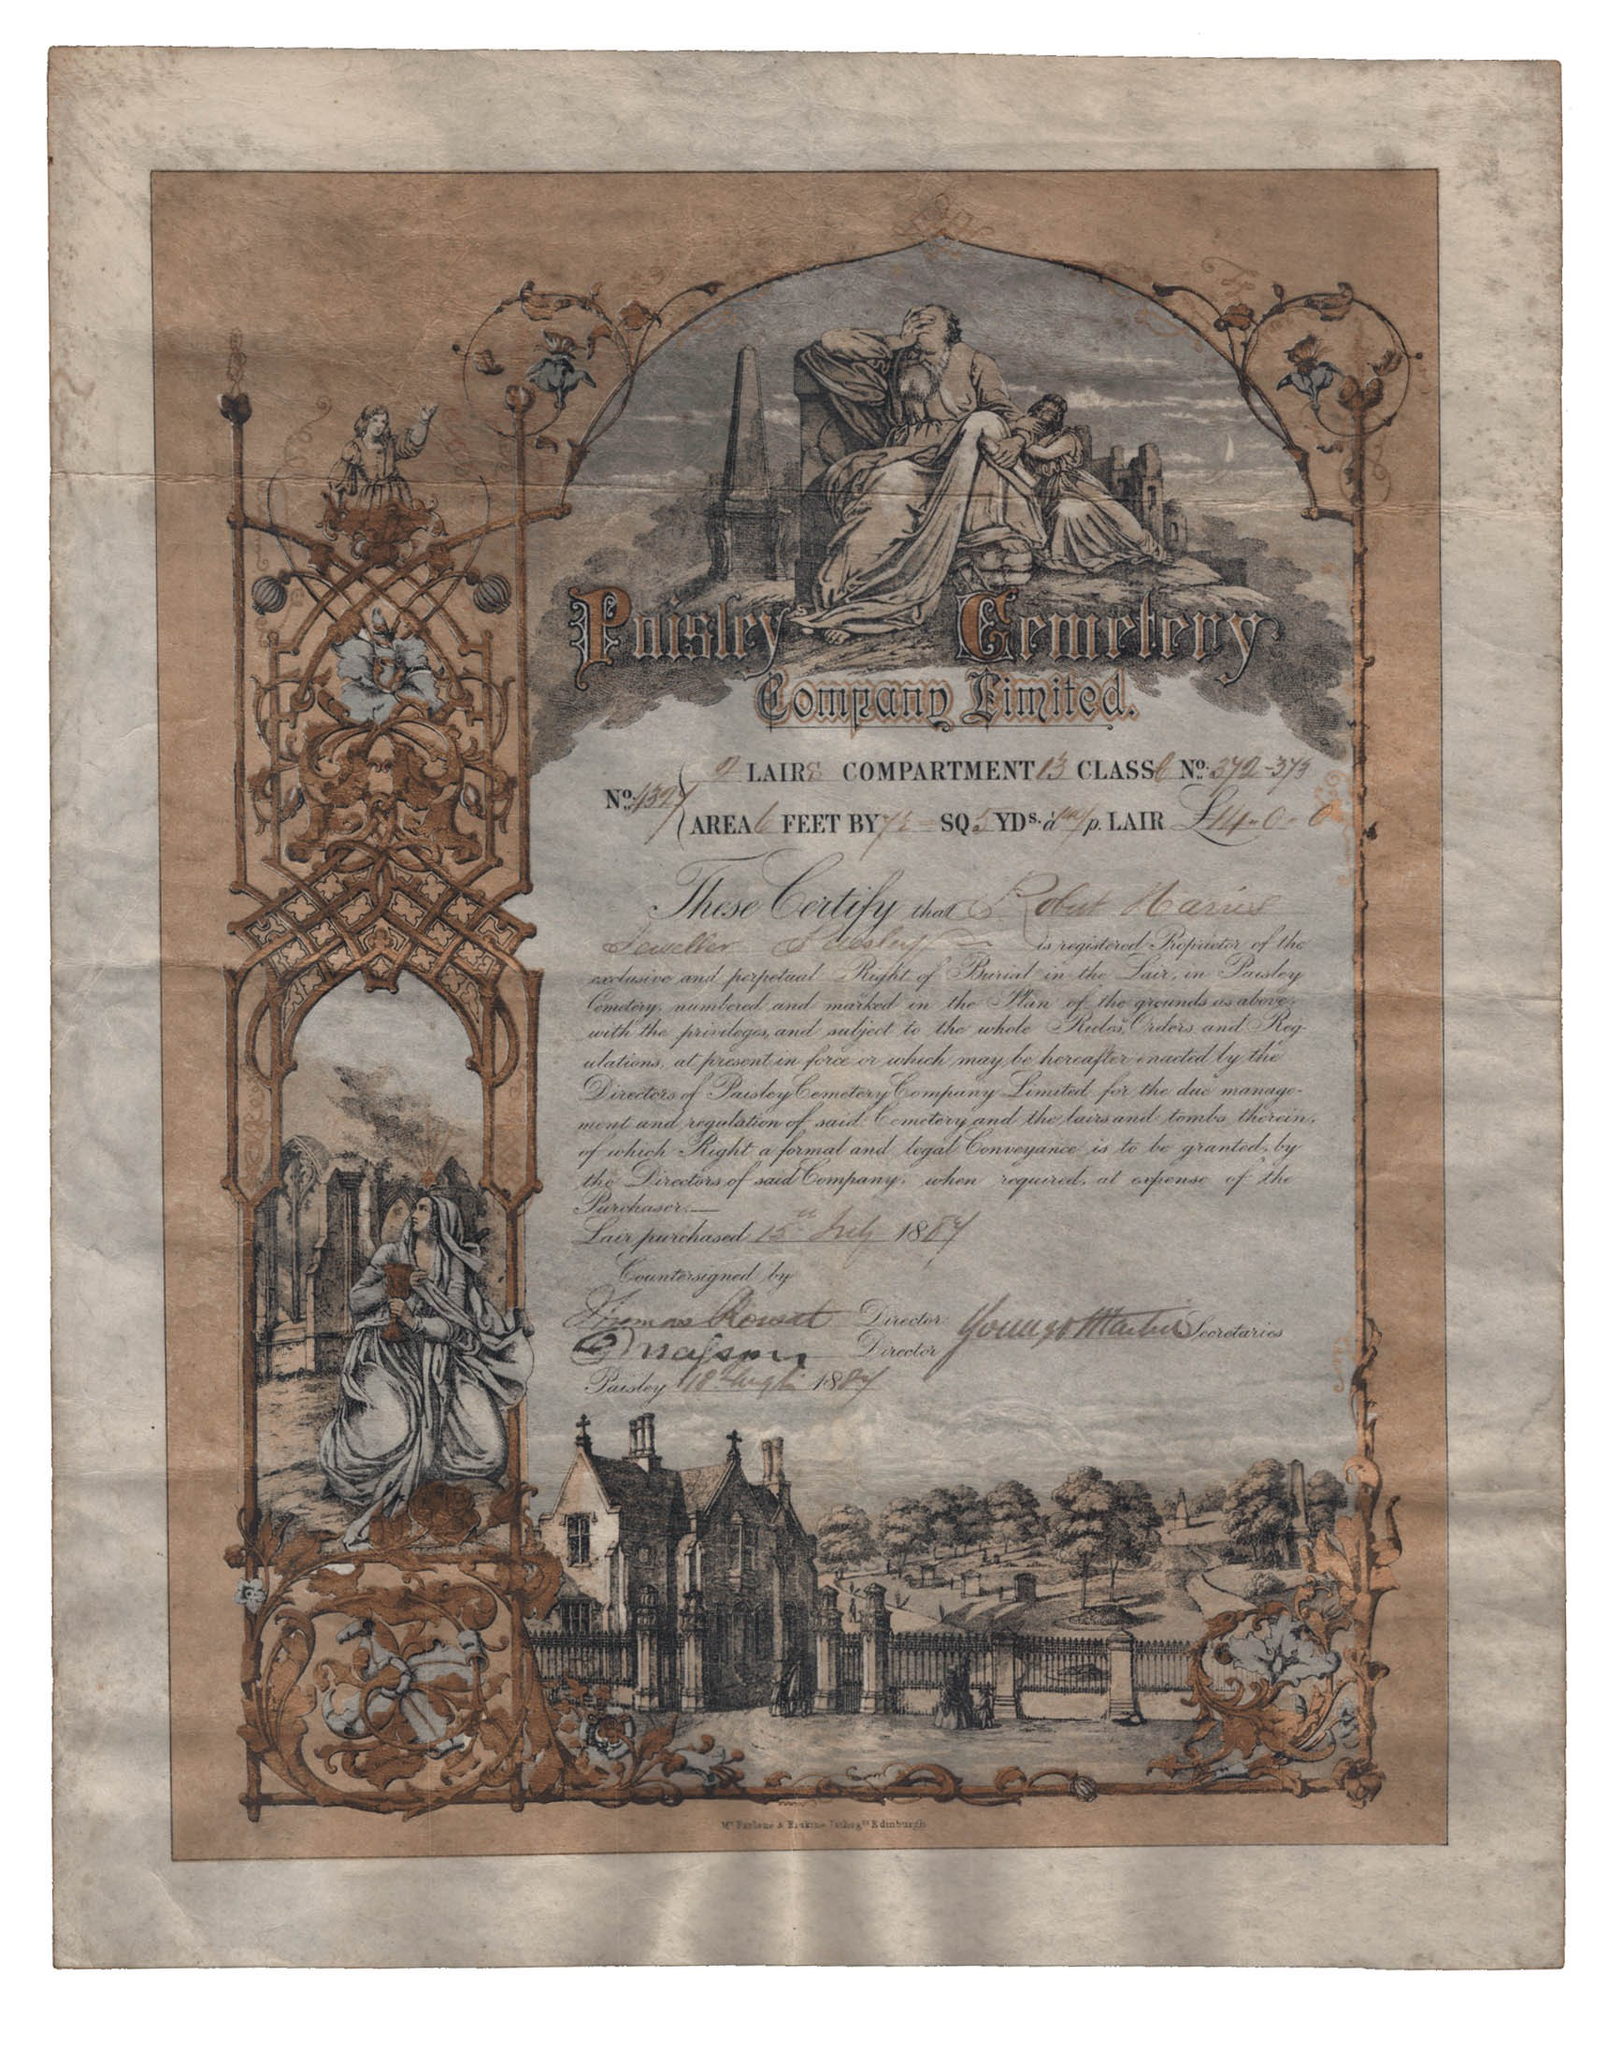 Paisley Cemetery
Company Limited.
2 LAIRS COMPARTMENT 13 CLASS 6 No. 372-373
No.
AREA 6 FEET BY 7½ SQ. 5 YDs. a p. LAIR £14-0-0
These Certify that Robert Harris
Jeweller Paisley is registered Proprietor of the
exclusive and perpetual Right of Burial in the Lair, in Paisley
Cemetery, numbered and marked in the Plan of the grounds as above,
with the privileges, and subject to the whole Rules, Orders, and Reg-
ulations, at present in force or which may be hereafter enacted by the
Directors of Paisley Cemetery Company Limited for the due manage-
ment and regulation of said Cemetery and the lairs and tombs therein,
of which Right a formal and legal Conveyance is to be granted, by
the Directors of said Company, when required, at expense of the
Purchaser.—
Lair purchased 15th July 1887
Countersigned by
Thomas Rowat Director Young & Martin Secretaries
Director
Paisley 18 1887
Mc Farlane & Erskine Lithogrs Edinburgh